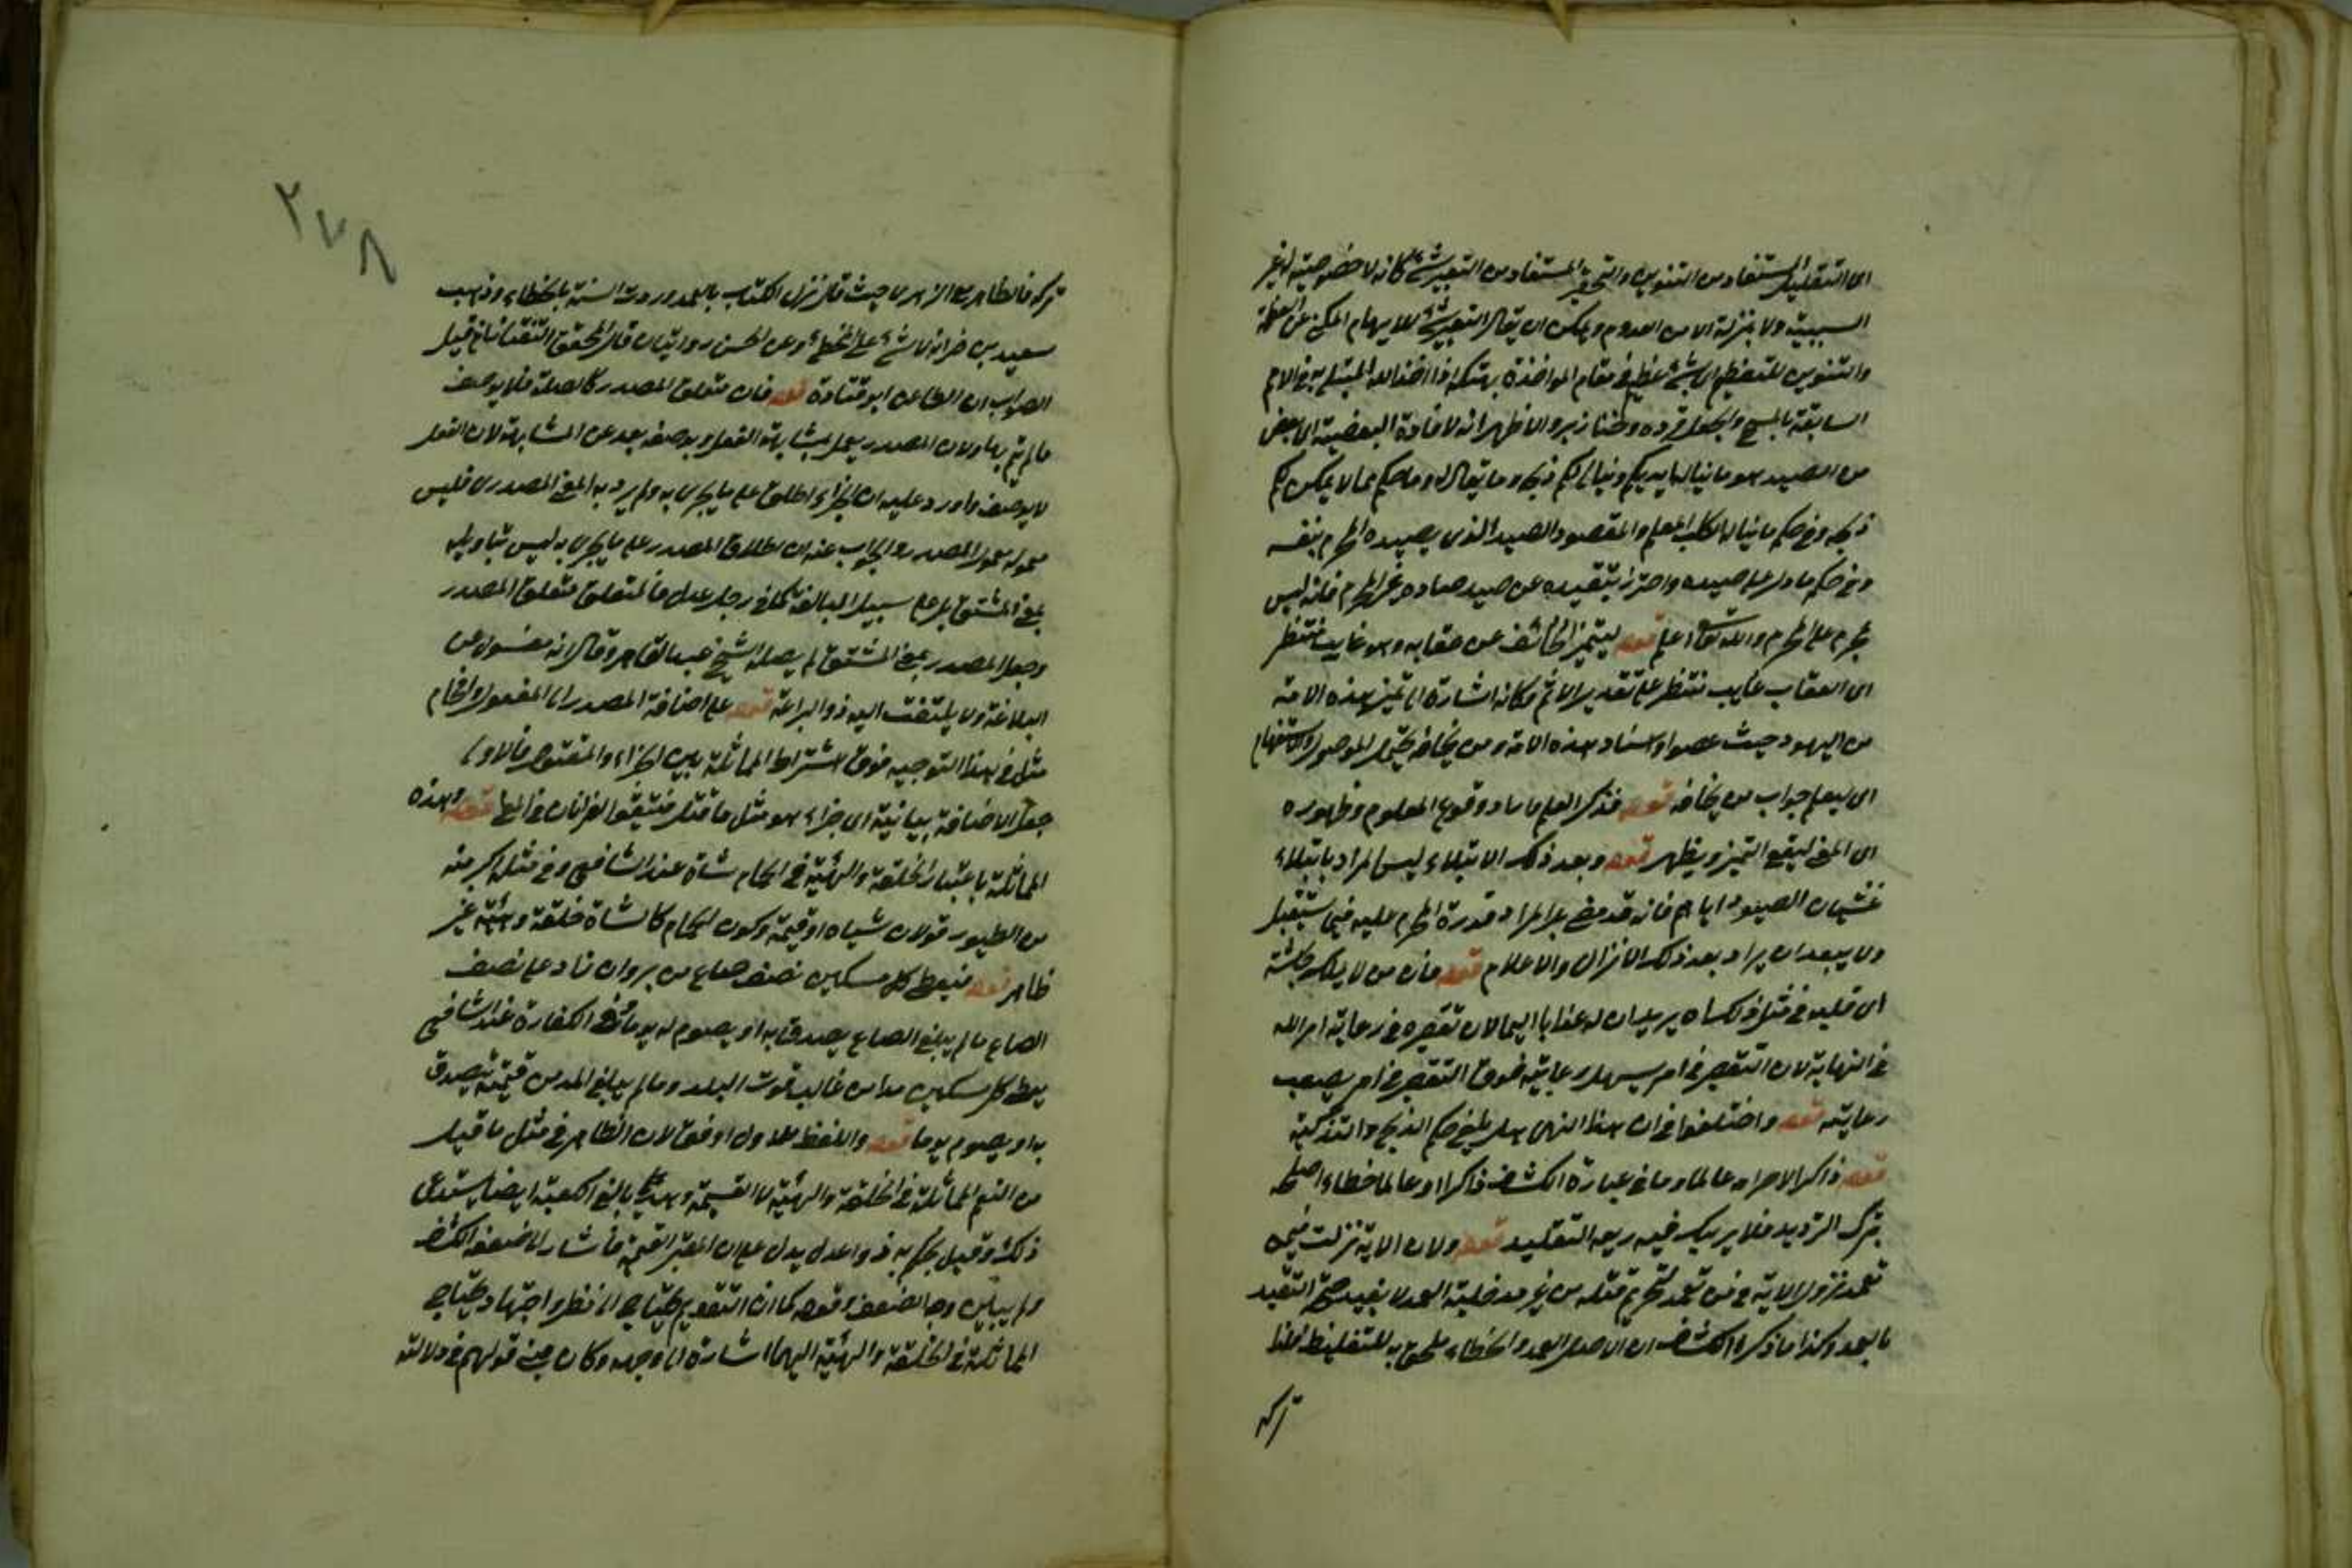 اى التقليل المستفاد من التنوين والتحقير المستفاد من التعبير بشئ كانه لا خصوصية له غير
السببية ولا بمنزلة الامن المعدوم ويمكن ان يقال التعبير بشئ للايهام المكنى عن العظمة
والتنوين للتعظيم اى بشئ عظيم فى مقام المواخذة بهتكه فذا اخذ الله المبتلى به فى الامم
السابقة بالمسخ والجعل قردة وخنازير والاظهر انه لافادة البعضية اى بعض
من الصيد هو ما نيالها يديكم وينالكم ذبحه وما يقال وماحكم مما لا يمكن لكم
ذبحه وفى حكم ما نيالها الكلب المعلم والمقصود الصيد الذى يصيده المحرم بنفسه
وفى حكم ما دل على صيده واحترز بتقييده عن صيد صاده غير المحرم فانه ليس
بمحرم على المحرم والله تعالى اعلم قوله ليتميز الخائف من عقابه وهو غايب منتظر
اى العقاب غايب منتظر على تقدير الاثم وكانه اشارة الى تميز هذه الامة
من اليهود حيث عصوا واسناد هذه الامة ومن يخافه يحتمل الموصول والاستفهام
اى ليعلم جواب من يخافه قوله فذكر العلم واراد وقوع المعلوم وظهوره
اى المعنى ليقع التميز ويظهر قوله وبعد ذلك الابتلاء ليس المراد بابتلاء
غشيان الصيود اياهم فانه قد مضى بل المراد قدرة المحرم عليه فيما يستقبل
ولا يبعد ان يراد بعد ذلك الانزال والاعلام قوله فان من لا يملك جاشه
اى قلبه فى مثل ذلك اه يريد ان له عذابا اليما لان تقصيره فى رعاية امر الله
فى النهاية لان التقصير فى امر يسهل رعايته فوق التقصير فى امر يصعب
رعايته قوله واختلفوا فى ان هذا النهى هل يلغى حكم الذبح والتذكية
قوله ذاكرا لاحرامه عالما وما فى عبارة الكشاف ذاكرا او عالما خطاء اصلحه
بترك الترديد فلا يريبك فيه ريعة التقليد قوله ولان الاية نزلت فيمن
تعمد نزول الاية فى من تعمد لتحريم قتله من غير مدخلية العمد لا يفيد صحة التقييد
بالعمد وكذا ما ذكره الكشاف ان الاصل العمد والخطاء ملحق به للتغليظ لهذا
تركه
٢٧٨
تركه فالظاهر مع الزهرى حيث قال نزل الكتاب بالعمد وردت السنة بالخطاء وذهب
سعيد بن جبير انه لا شئ على المخطئ وعن الحسن روايتان قال المحقق التفتازانى قيل
الصواب ان الطاعن ابو قتادة قوله فان متعلق المصدر كالصلة فلا يوصف
مالم يتم بها ولان المصدر يعمل بمشابهة الفعل وبوصفه بعد عن المشابهة لان الفعل
لا يوصف واورد عليه ان الجزاء اطلق على ما يجزى به ولم يرد به المعنى المصدرى فليس
معموله معمول المصدر والجواب عنه ان اطلاق المصدر على ما يجزى به ليس بتاويله
بمعنى المشتق بل على سبيل المبالغة كما فى رجل عدل فالمتعلق متعلق المصدر
وجعل المصدر بمعنى المشتق لم يصله الشيخ عبد القاهر وقال انه معسول عن
البلاغة ولا يلتفت اليه ذو البراعة قوله على اضافة المصدر الى المفعول واقحام
مثل فى هذا التوجيه فوق اشتراط المماثلة بين الجزاء والمقتول فالاولى
جعل الاضافة بيانية اى جزاء هو مثل ما قتل فيتفق القراءتان فى المعنى قوله وهذه
المماثلة باعتبار الخلقة والهيئة فى الحمام شاة عند الشافعى وفى مثله اكبر منه
من الطيور قولان شياه او قيمة وكون الحمام كالشاة خلقة وهيئة غير
ظاهر قوله فيعطى كل مسكين نصف صاع من بر وان زاد على نصف
الصاع ما لم يبلغ الصاع يصدق به او يصوم له يوما وفى الكفارة عند الشافعى
يعطى كل مسكين مدا من غالب قوت البلد وما لم يبلغ المد من قيمته يتصدق
به او يصوم يوما قوله واللفظ للاول اوفق لان الظاهر فى مثل ما قتل
من النعم المماثلة فى الخلقة والهيئة لا القيمة وهديا بالغ الكعبة ايضا يستدعى
ذلك وقيل يحكم به ذوا عدل يدل على ان المعتبر القيمة فاشار الى ضعفه الكشاف
ولم يبين وجه الضعف وقوله كما ان التقويم يحتاج الى نظر واجتهاد يحتاج
المماثلة فى الخلقة والهيئة اليهما اشارة الى وجهه وكان مبنى قولهم فى دلالته